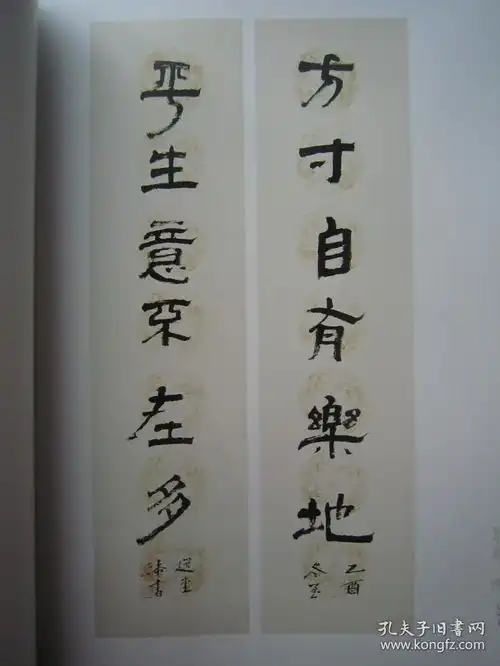 方寸自有樂地
乙酉
冬至
平生意不在多
選堂
漆書
孔夫子旧书网
www.kongfz.com